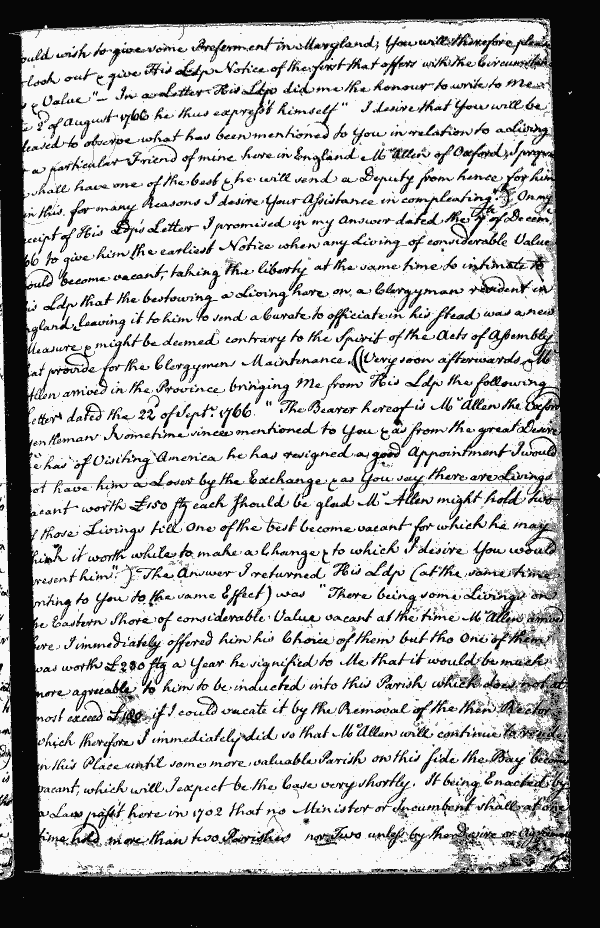 ould wish to give some Preferment in Maryland; You will therefore please
look out & give His Ldp Notice of the first that offers with the Circumstan
s & Value" — In a Letter His Ldp did me the honour to write to Me
e 2d of August 1766 he thus expresst himself " I desire that You will be
leased to observe what has been mentioned to You in relation to a Living
r a particular Friend of mine here in England Mr Allen of Oxford, I propose
shall have one of the best & he will send a Deputy from hence for him
in this, for many Reasons I desire Your Assistance in compleating" On my
ceipt of His Ldp's Letter I promised in my Answer dated the of Decem.
66 to give him the earliest Notice when any Living of considerable Value
ould become vacant, taking the liberty at the same time to intimate to
is Ldp that the bestowing a Living here on a Clergyman resident in
ngland leaving it to him to send a Curate to officiate in his stead was a new
Measure & might be deemed contrary to the Spirit of the Acts of Assembly
hat provide for the Clergymens Maintenance. (Very soon afterwards Mr
Allen arrived in the Province bringing Me from His Ldp the following
Letter dated the 22 of Septr 1766. " The Bearer hereof is Mr Allen the Oxford
Gentleman I sometime since mentioned to You & as from the great Desire
he has of Visiting America he has resigned a good Appointment I would
not have him a Loser by the Exchange & as You say there are Livings
vacant worth £150 each Should be glad Mr Allen might hold two
f those Livings till One of the best become vacant for which he may
think it worth while to make a Change & to which I desire You would
present him".) The Answer I returned His Ldp (at the same time
writing to You to the same Effect) was "There being some Livings on
he Eastern Shore of considerable Value vacant at the time Mr Allen arrived
here I immediately offered him his Choice of them but tho One of them
was worth a Year he signified to Me that it would be much
more agreeable to him to be inducted into this Parish which does not at
most exceed if I could vacate it by the Removal of the then Rector
which therefore I immediately did so that Mr Allen will continue to reside
in this Place until some more valuable Parish on this side the Bay become
vacant, which will I expect be the Case very shortly. It being Enacted by
a Law passt here in 1702 that no Minister or Incumbent shall at one
time hold more than two Parishes nor Two unless by the Desire or